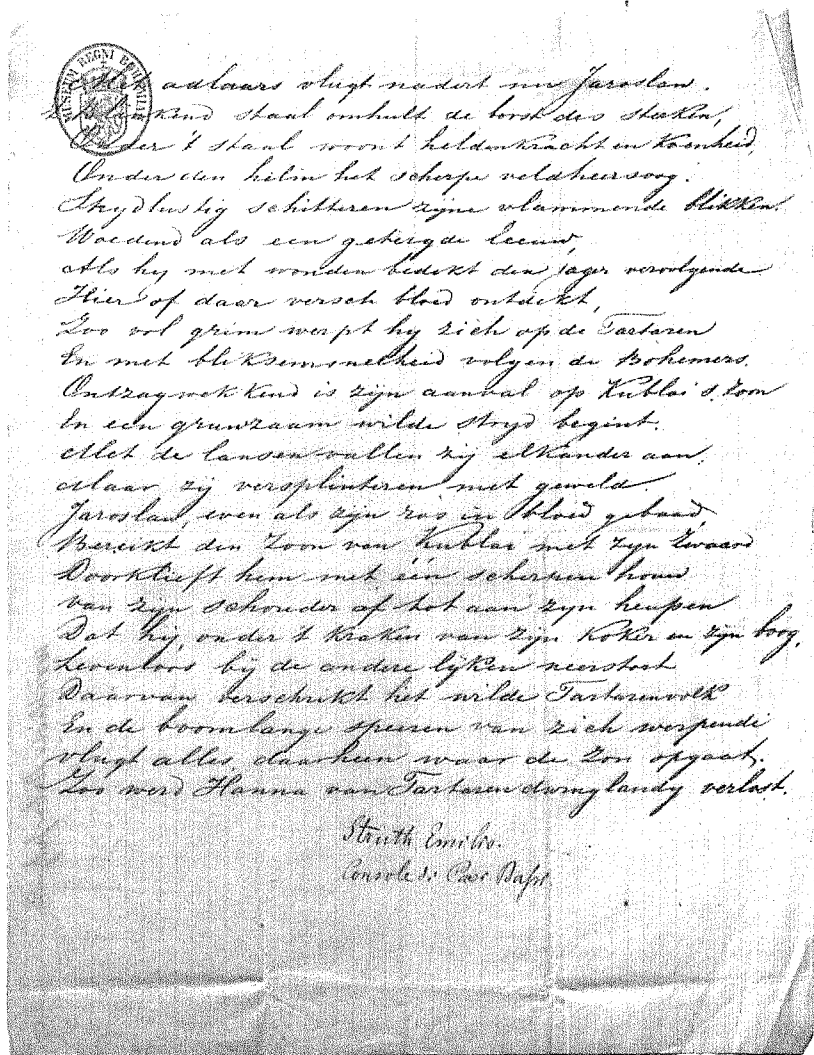 MUSEUM REGNI BOHEMIAE
Met adlaars vlugt nadert nu Jaroslaw.
kend staal omhult de borst des sterken,
Onder 't staal woont heldenkracht en Koenheid,
Onder den helm het scherpe veldheersoog.
Strydlustig schitteren zijne vlammende blikken.
Woedend als een getergde leeuw,
Als hy met wonden bedekt den jager vervolgende
Hier of daar versch bloed ontdekt,
Zoo vol grim werpt hy zich op de Tartaren
En met bliksemsnelheid volgen de Bohemers.
Ontzagwekkend is zijn aanval op Kublai's Zoon
En een gruwzaam wilde stryd begint.
Met de lansen vallen zij elkander aan,
Maar zij versplinteren met geweld.
Jaroslaw, even als zijn ros in bloed gebaad,
Bereikt den Zoon van Kublai met zijn Zwaard
Doorklieft hem met één scherpen houw
van zijn schouder af tot aan zijn heupen
Dat hij, onder 't kraken van zijn Koker en zijn boog,
Levenloos bij de andere lijken neerstort
Daarvan verschrikt het wilde Tartarenvolk
En de boomlange speeren van zich werpende
vlugt alles daarheen waar de Zon opgaat.
Zoo werd Hanna van Tartaren dwinglandy verlost.
Struth Emilio.
Console di Paesi Bassi